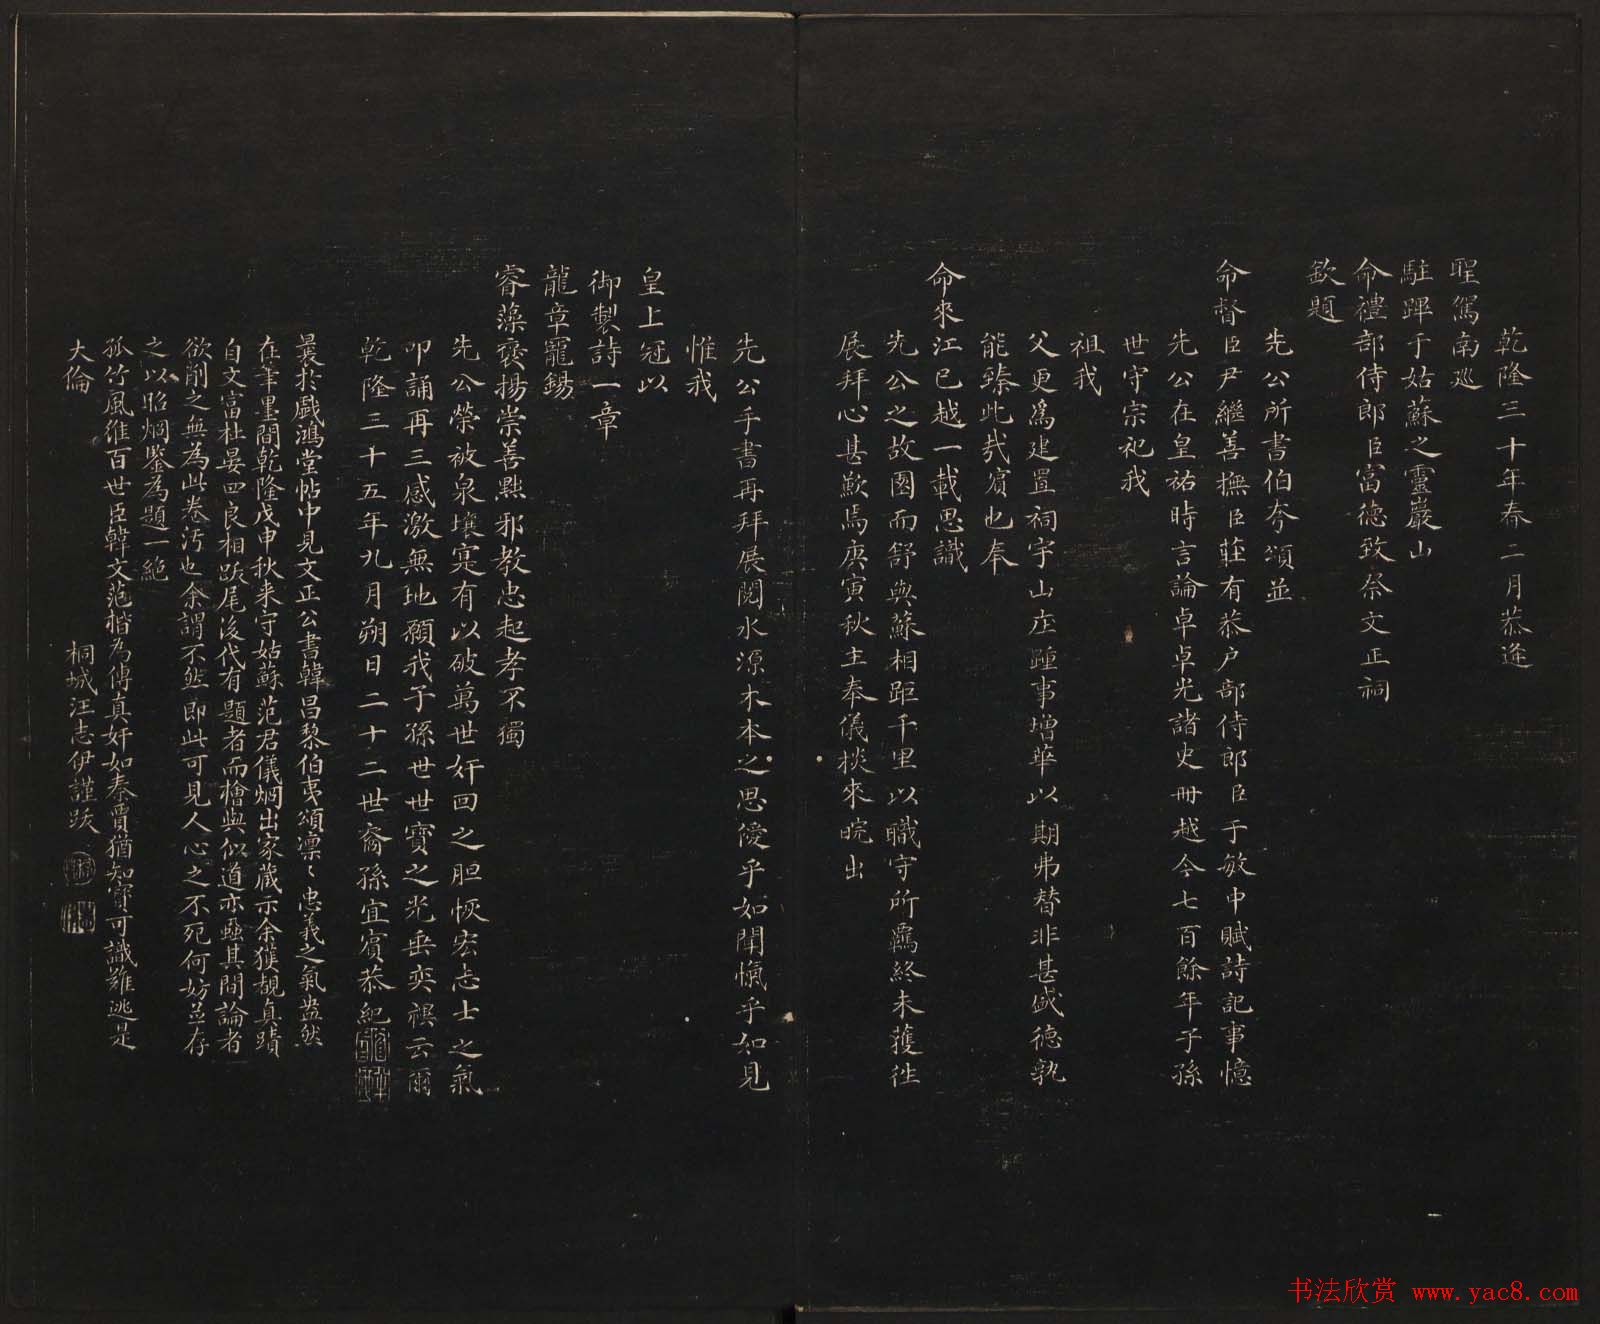 乾隆三十年春二月恭逢
聖駕南巡
駐蹕于姑蘇之靈巖山
命禮部侍郎臣富德致祭文正祠
欽題
先公所書伯夷頌並
命督臣尹繼善撫臣莊有恭户部侍郎臣于敏中賦詩記事憶
先公在皇祐時言論卓卓光諸史冊越今七百餘年子孫
世守宗祀我
祖我
父更為建置祠宇山庄踵事增華以期弗替非甚盛德孰
能臻此哉賓也奉
命來江已越一載思識
先公之故園而舒與蘇相距千里以職守所羈終未獲徃
展拜心甚歉焉庚寅秋主奉儀掞來晥出
先公手書再拜展閱水源木本之思僾乎如聞愾乎如見
惟我
皇上冠以
御製詩一章
龍章寵錫
睿藻褒揚崇善黜邪教忠起孝不獨
先公榮被泉壤寔有以破萬世奸回之胆恢宏志士之氣
叩誦再三感激無地願我子孫世世寶之光垂奕禩云爾
乾隆三十五年九月朔日二十二世裔孫宜賓恭紀
曩於戲鴻堂帖中見文正公書韓昌黎伯夷頌凛〻忠義之氣盎然
在筆墨間乾隆戊申秋来守姑蘇范君儀炯出家蔵示余獲覩真蹟
自文富杜晏四良相跋尾後代有題者而檜與似道亦廁其間論者
欲削之無為此卷汚也余謂不然即此可見人心之不死何妨並存
之以昭炯鑒為題一絶
孤竹風維百世臣韓文范楷為傳真奸如秦賈猶知寶可識難逃是
大倫
桐城汪志伊謹跋
书法欣赏 www.yac8.com